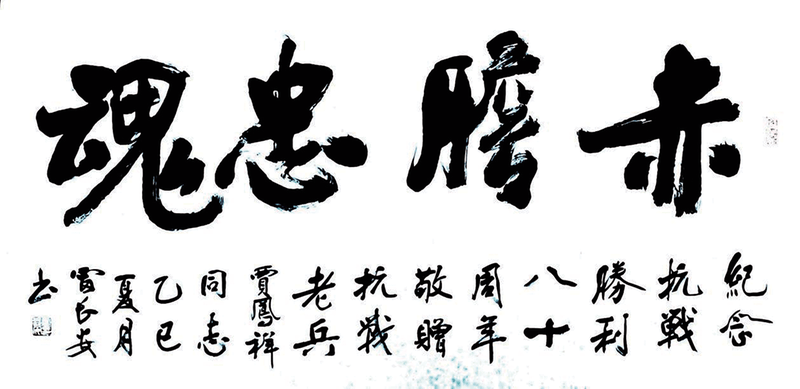 赤膽忠魂
紀念
抗戰
勝利
八十
周年
敬贈
抗戰
老兵
賈鳳祥
同志
乙巳
夏月
雷长安
书